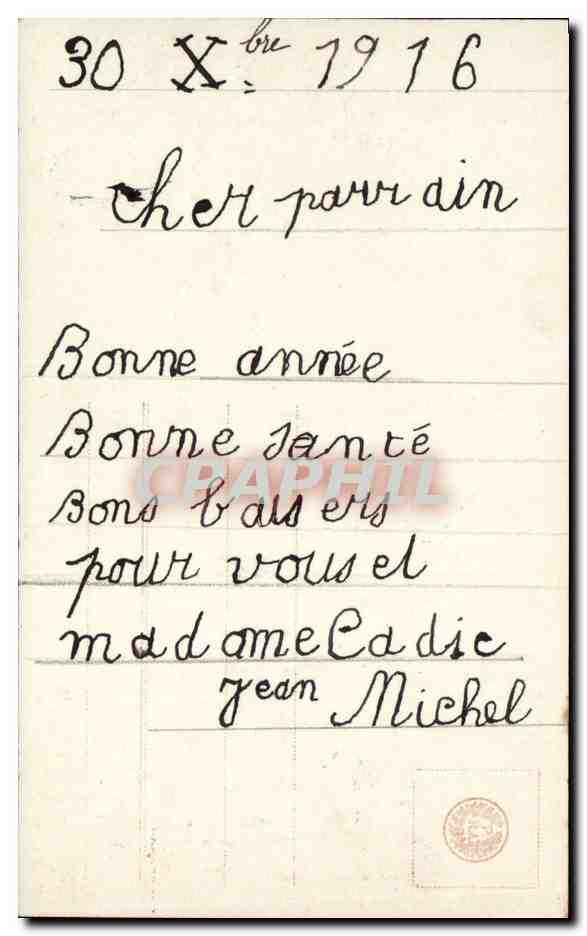 30 Xbre 1916
Cher parrain
Bonne année
Bonne santé
Bons baisers
CPAPHIL
pour vous et
madame Cadic
Jean Michel